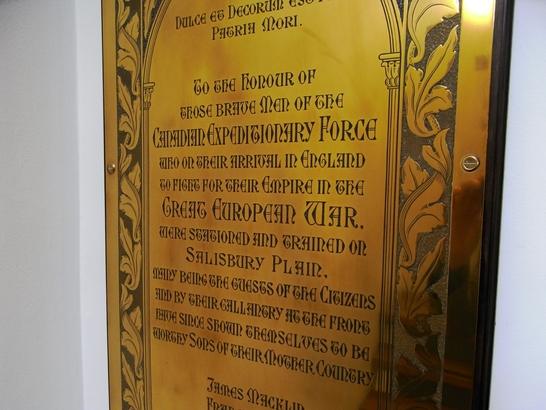 Dulce et Decorum est
Patria Mori.
To the Honour of
those brave Men of the
Canadian Expeditionary Force
who on their arrival in England
to fight for their Empire in the
Great European War.
were stationed and trained on
Salisbury Plain,
many being the guests of the Citizens
and by their gallantry at the Front
have since shown themselves to be
worthy Sons of their Mother Country
James Macklin